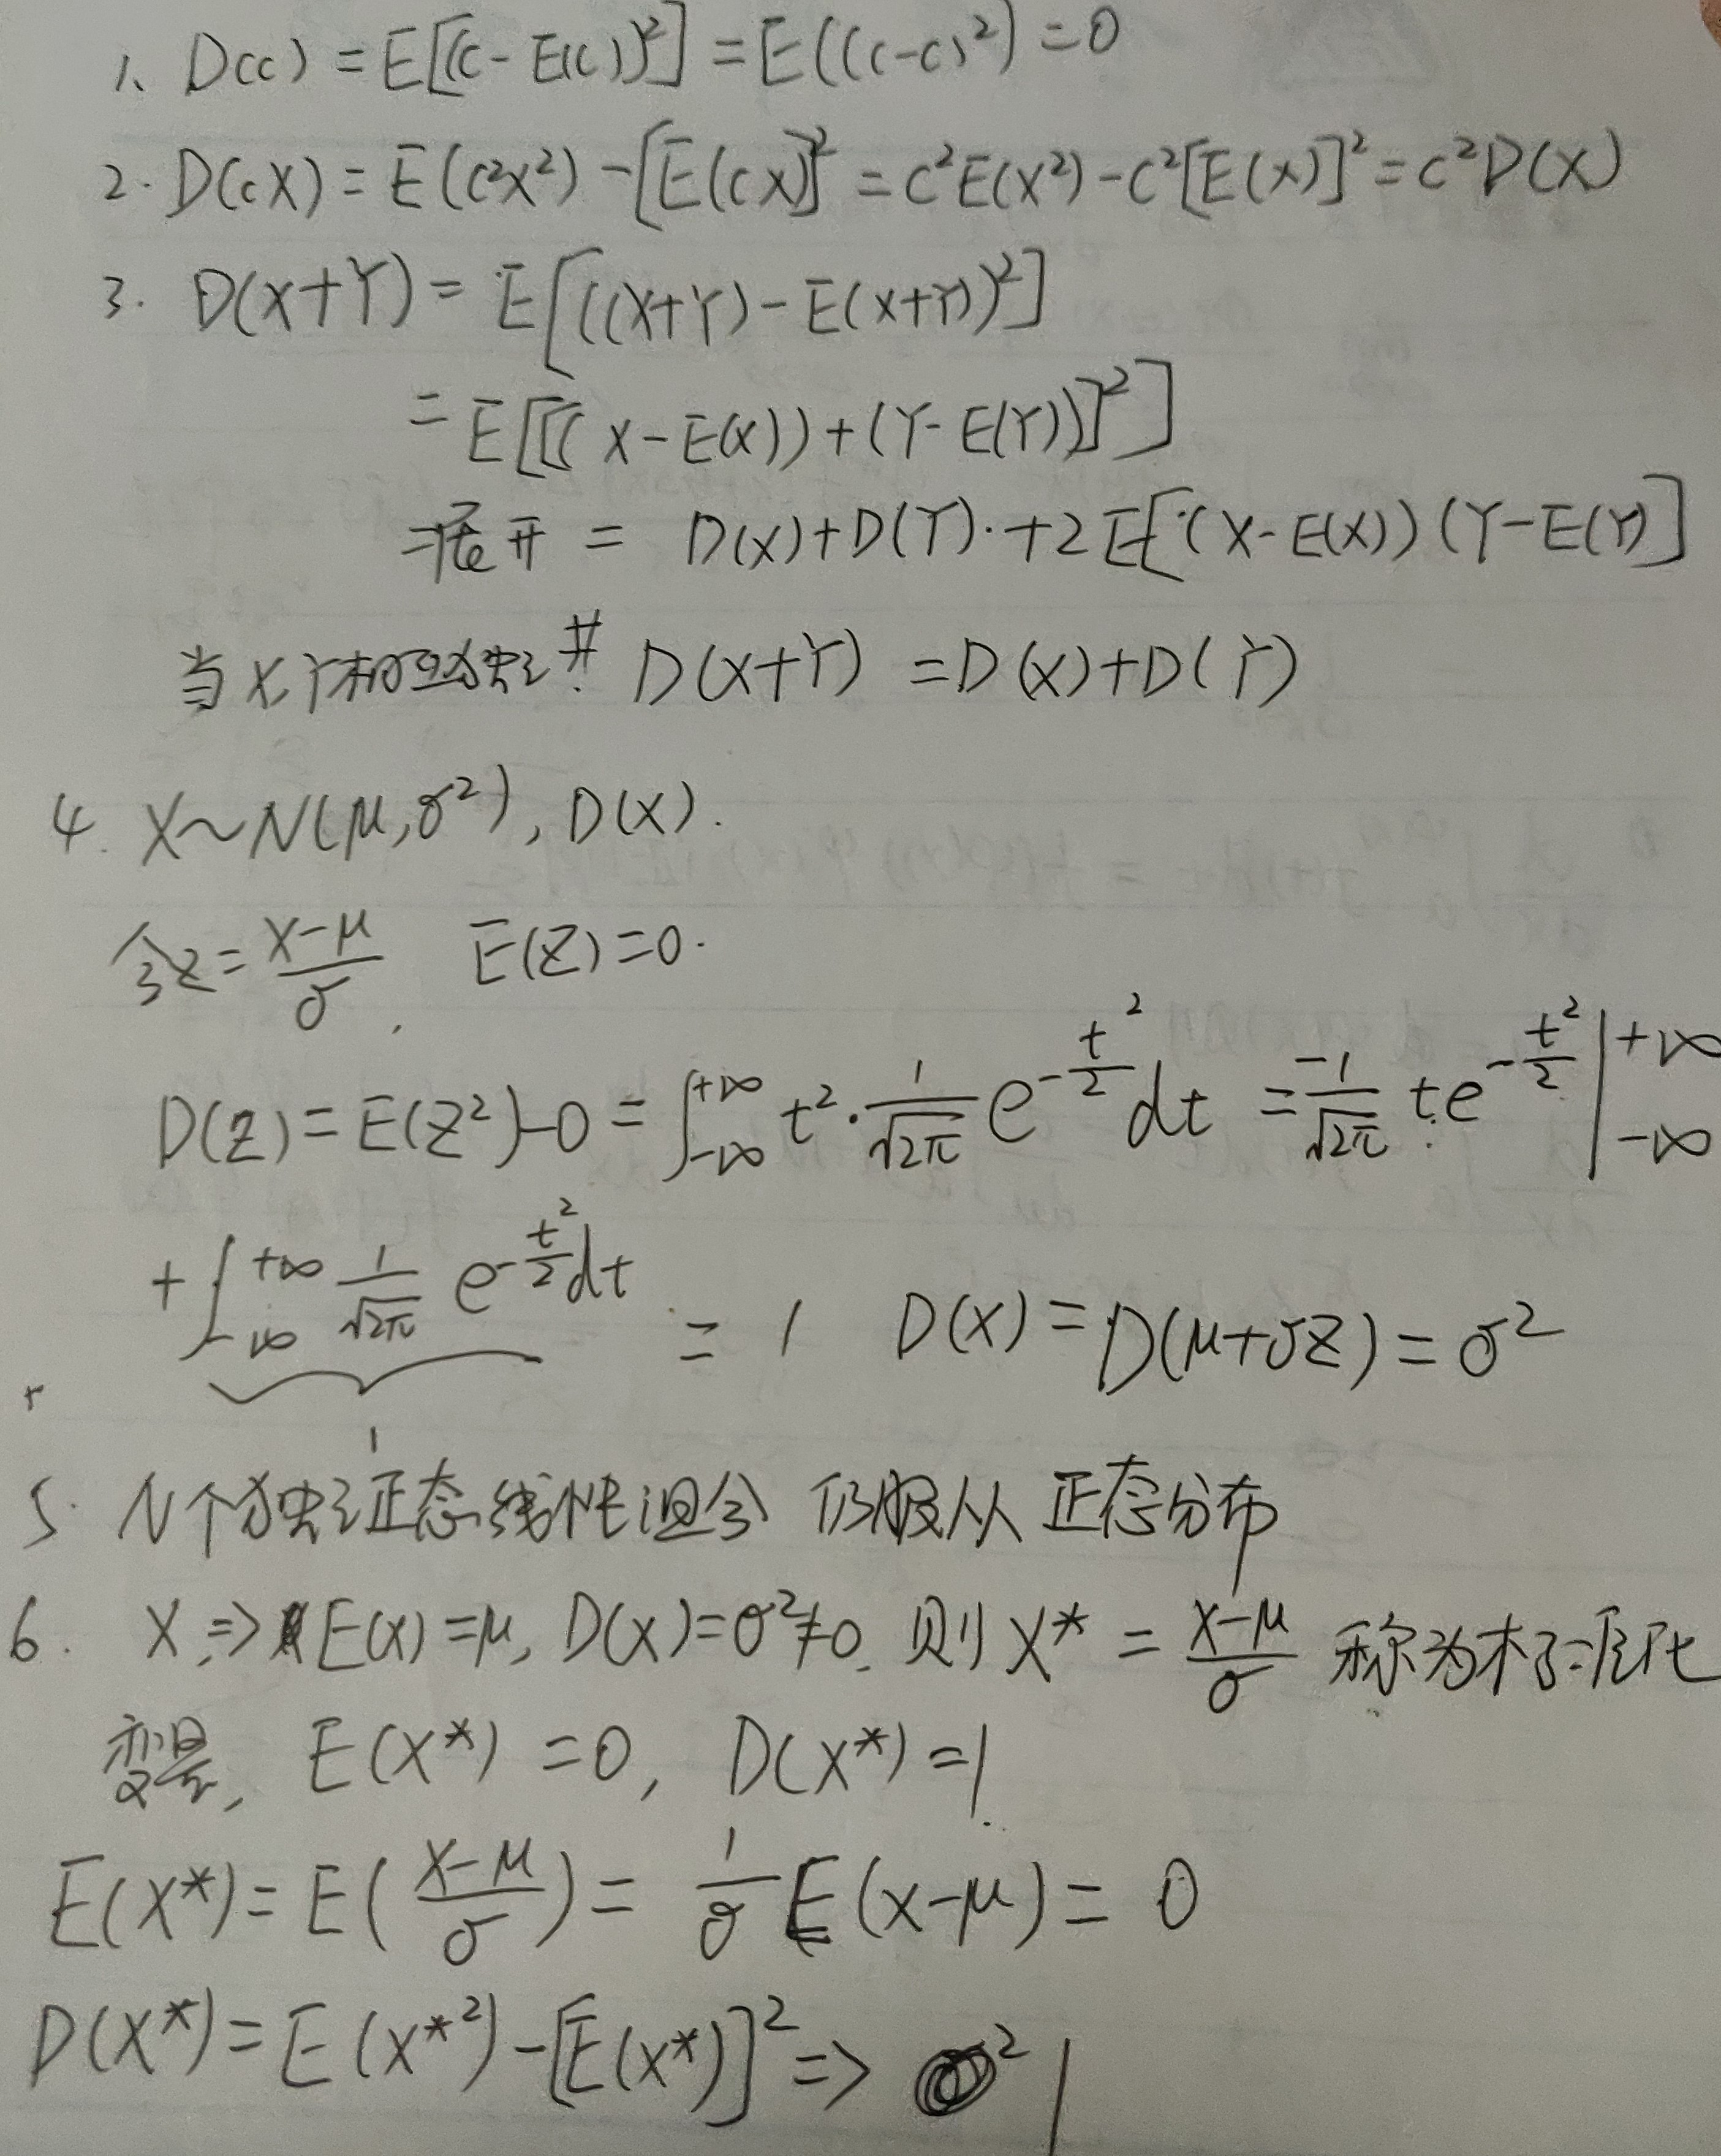 1、D(c) = E[(c-E(c))²] = E((c-c)²) = 0
2. D(cX) = E(c²X²) - [E(cX)]² = c²E(X²) - c²[E(X)]² = c²D(X)
3. D(X+Y) = E[((X+Y) - E(X+Y))²]
= E[[(X-E(X)) + (Y-E(Y))]²]
= 展开 = D(X)+D(Y)+2E[(X-E(X))(Y-E(Y)]
当X,Y相互独立 # D(X+Y) = D(X)+D(Y)
4. X~N(μ,σ²), D(X).
令Z = \frac{X-μ}{σ}, E(Z)=0.
D(Z) = E(Z²)-0 = ∫_{-∞}^{+∞} t²·\frac{1}{\sqrt{2π}} e^{-\frac{t²}{2}} dt = \frac{-1}{\sqrt{2π}} t e^{-\frac{t²}{2}} |_{-∞}^{+∞}
+ ∫_{-∞}^{+∞} \frac{1}{\sqrt{2π}} e^{-\frac{t²}{2}} dt = 1 D(X) = D(μ+σZ) = σ²
1
5. N个独立正态线性组合 仍服从 正态分布
6. X => E(X)=μ, D(X)=σ²≠0. 则 X* = \frac{X-μ}{σ} 称为标准化
变量, E(X*) = 0, D(X*) = 1
E(X*) = E(\frac{X-μ}{σ}) = \frac{1}{σ} E(X-μ) = 0
D(X*) = E(X*²) - [E(X*)]² => 1